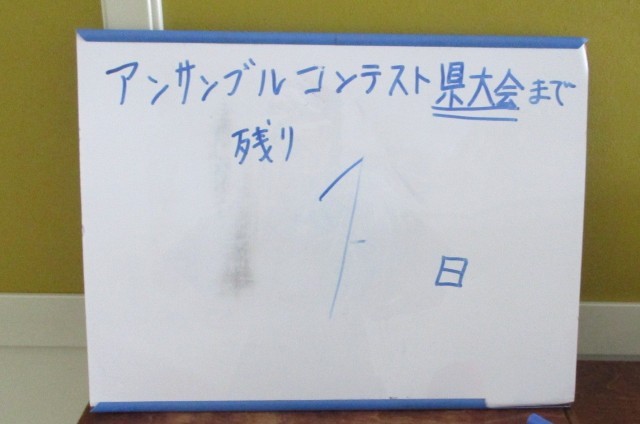 アンサンブルコンテスト県大会まで
残り
1
日